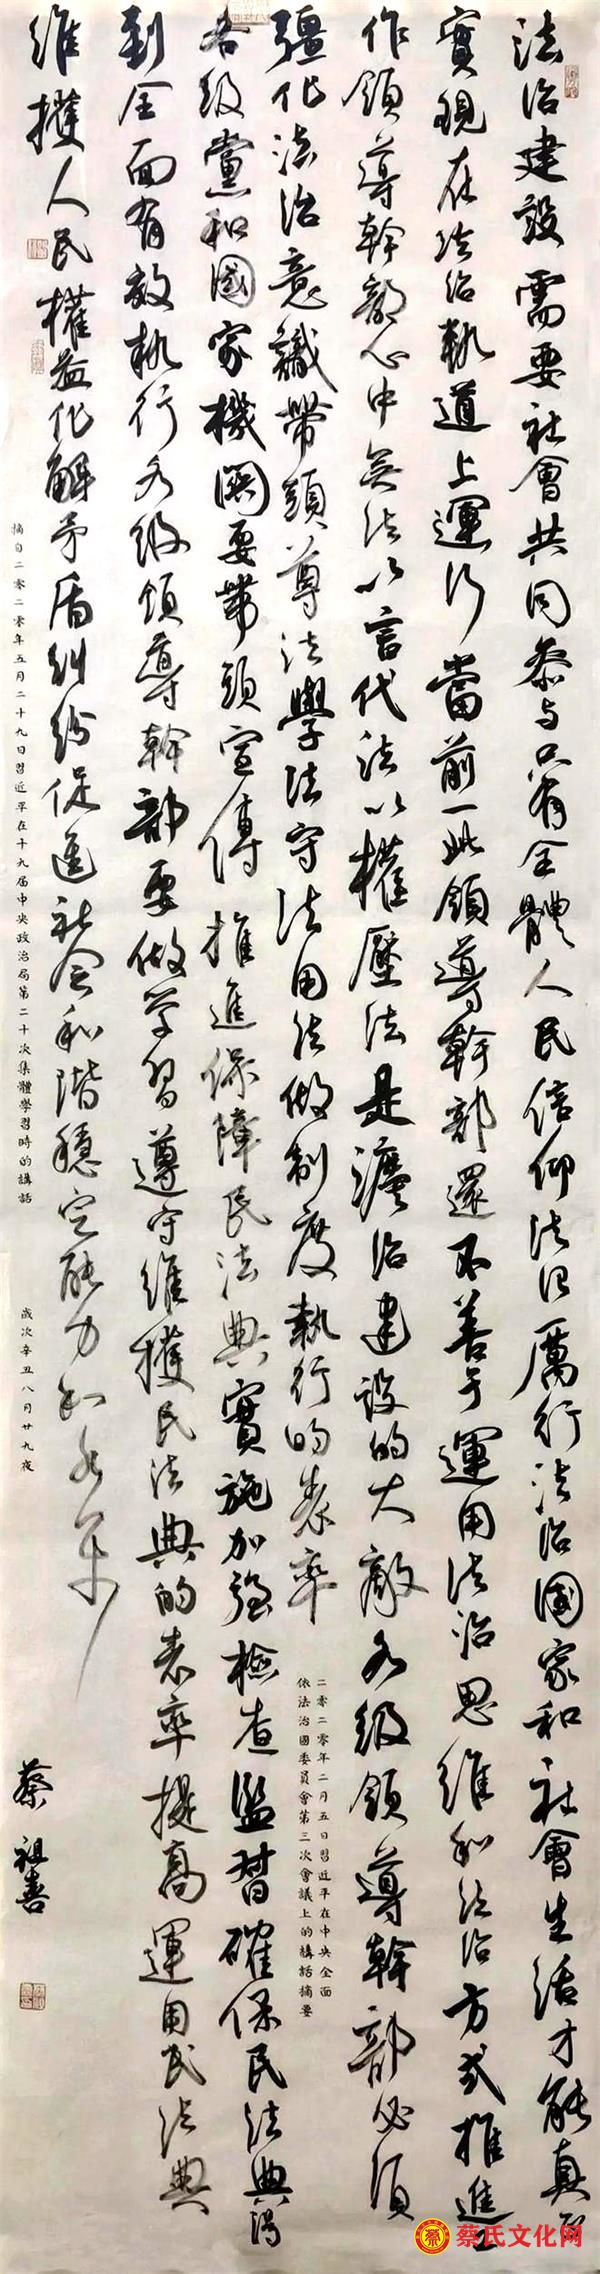 法治建設需要社會共同參与只有全體人民信仰法治厲行法治國家和社會生活才能真正
實現在法治軌道上運行當前一些領導幹部還不善于運用法治思維和法治方式推進工
作領導幹部心中無法以言代法以權壓法是法治建設的大敵各級領導幹部必須
彊化法治意識帶頭尊法學法守法用法做制度執行的表率
二零二零年二月五日習近平在中央全面
依法治國委員會第三次會議上的講話摘要
各級黨和國家機關要帶頭宣傳推進保障民法典實施加強檢查監督確保民法典得
到全面有效執行各級領導幹部要做学習遵守維護民法典的表率提高運用民法典
維護人民權益化解矛盾糾紛促進社会和諧穩定能力和水平
摘自二零二零年五月二十九日習近平在十九屆中央政治局第二十次集體學習時的講話
歲次辛丑八月廿九夜
蔡祖善
蔡氏文化网